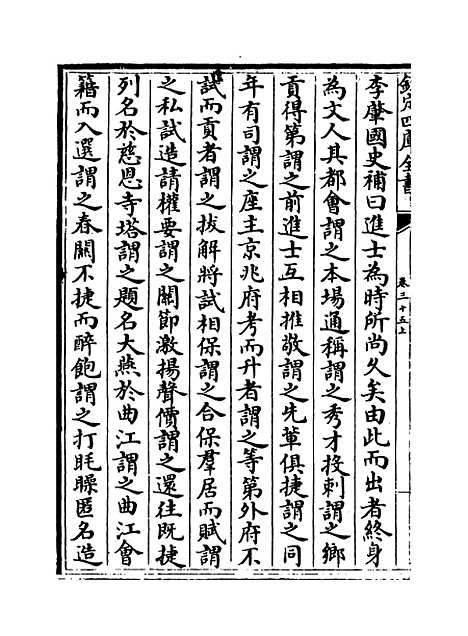 欽定四庫全書
卷三十五上
李肇國史補曰進士為時所尚久矣由此而出者終身
為文人其都會謂之本場通稱謂之秀才投刺謂之鄉
貢得第謂之前進士互相推敬謂之先輩俱捷謂之同
年有司謂之座主京兆府考而升者謂之等第外府不
試而貢者謂之拔解將試相保謂之合保羣居而賦謂
之私試造請權要謂之關節激揚聲價謂之還往既捷
列名於慈恩寺塔謂之題名大燕於曲江謂之曲江會
籍而入選謂之春闗不捷而醉飽謂之打毷氉匿名造